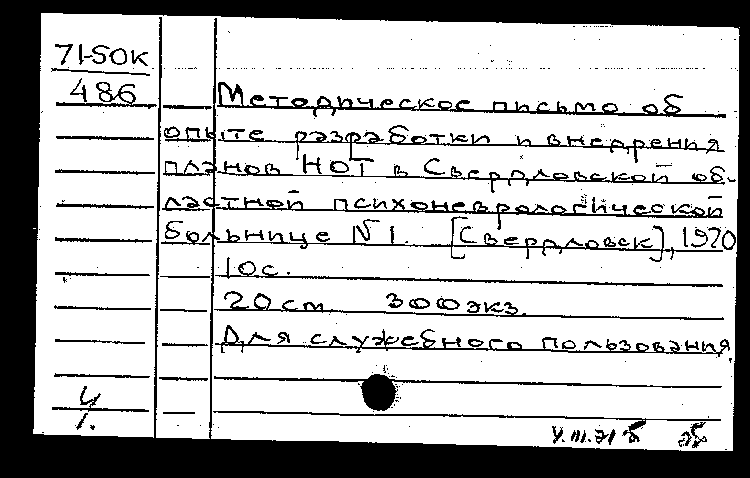 71-50К
486
Методическое письмо об
опыте разработки и внедрения
планов НОТ в Свердловской об-
ластной психоневрологической
больнице N 1. [Свердловск], 1970
10с.
20 см 300 экз.
Для служебного пользования.
У.III.71